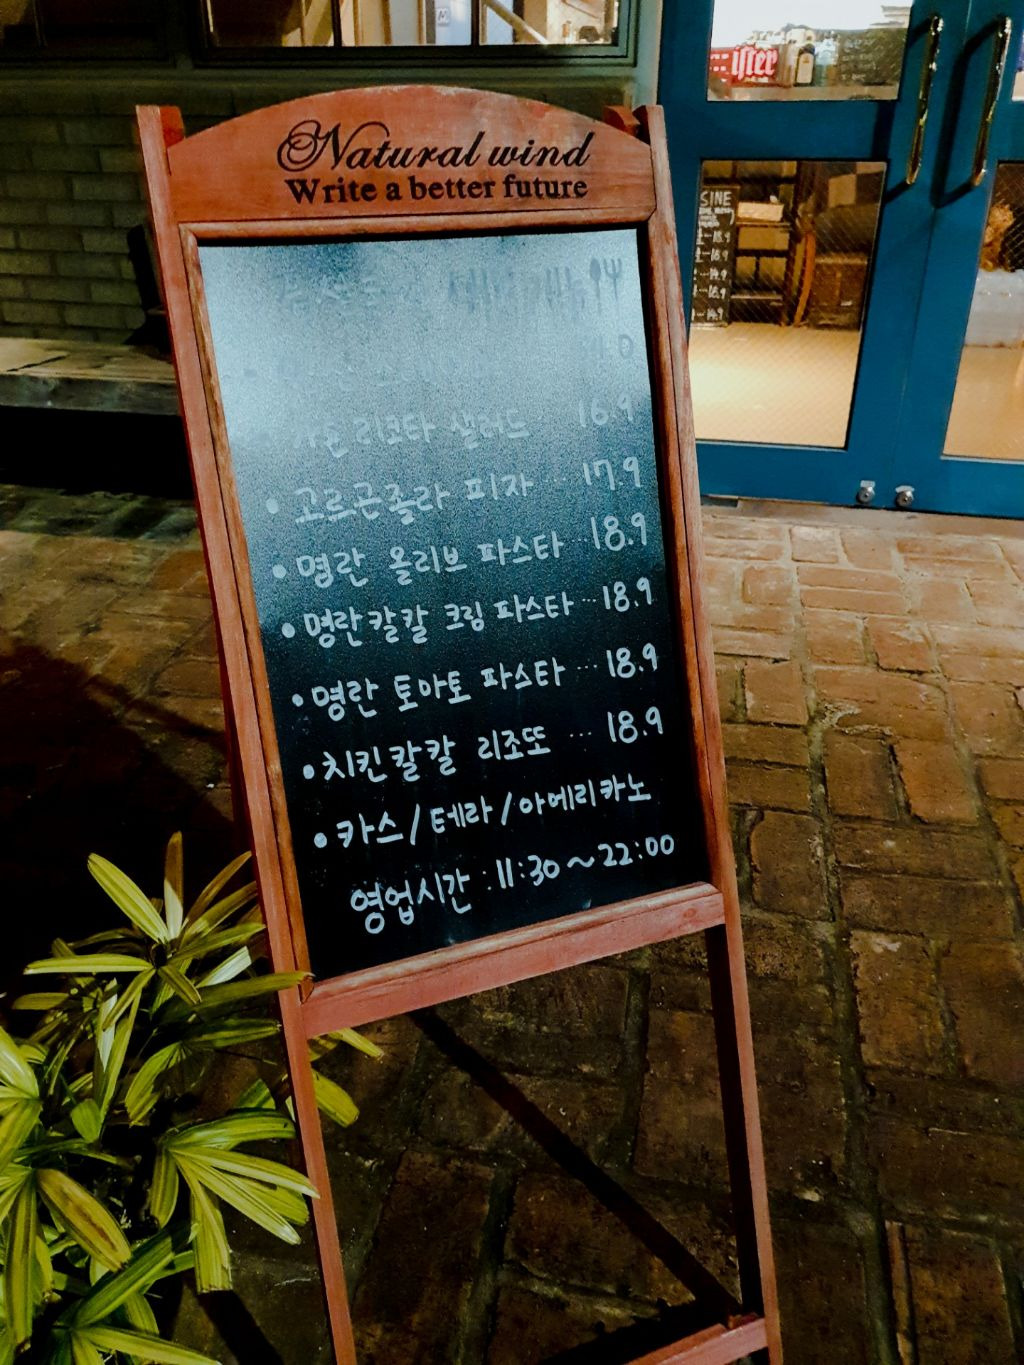 Natural wind
Write a better future
리코타 샐러드 16.9
• 고르곤졸라 피자 ... 17.9
• 명란 올리브 파스타 ... 18.9
• 명란칼칼 크림 파스타 ... 18.9
• 명란 토마토 파스타 ... 18.9
• 치킨칼칼 리조또 ... 18.9
• 카스/테라/아메리카노
영업시간 : 11:30~22:00
SINE